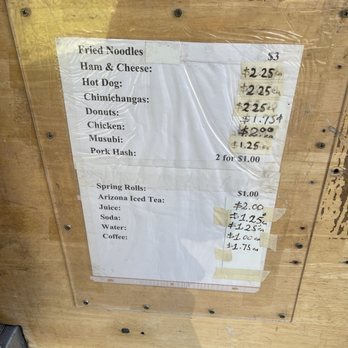 Fried Noodles $3
Ham & Cheese: $2.25ea
Hot Dog: $2.25ea
Chimichangas: $2.25ea
Donuts: $1.75¢
Chicken: $2.00
Musubi: $1.25
Pork Hash: 2 for $1.00
Spring Rolls: $1.00
Arizona Iced Tea: $2.00
Juice: $1.25
Soda: $1.25
Water: $1.00
Coffee: $1.75